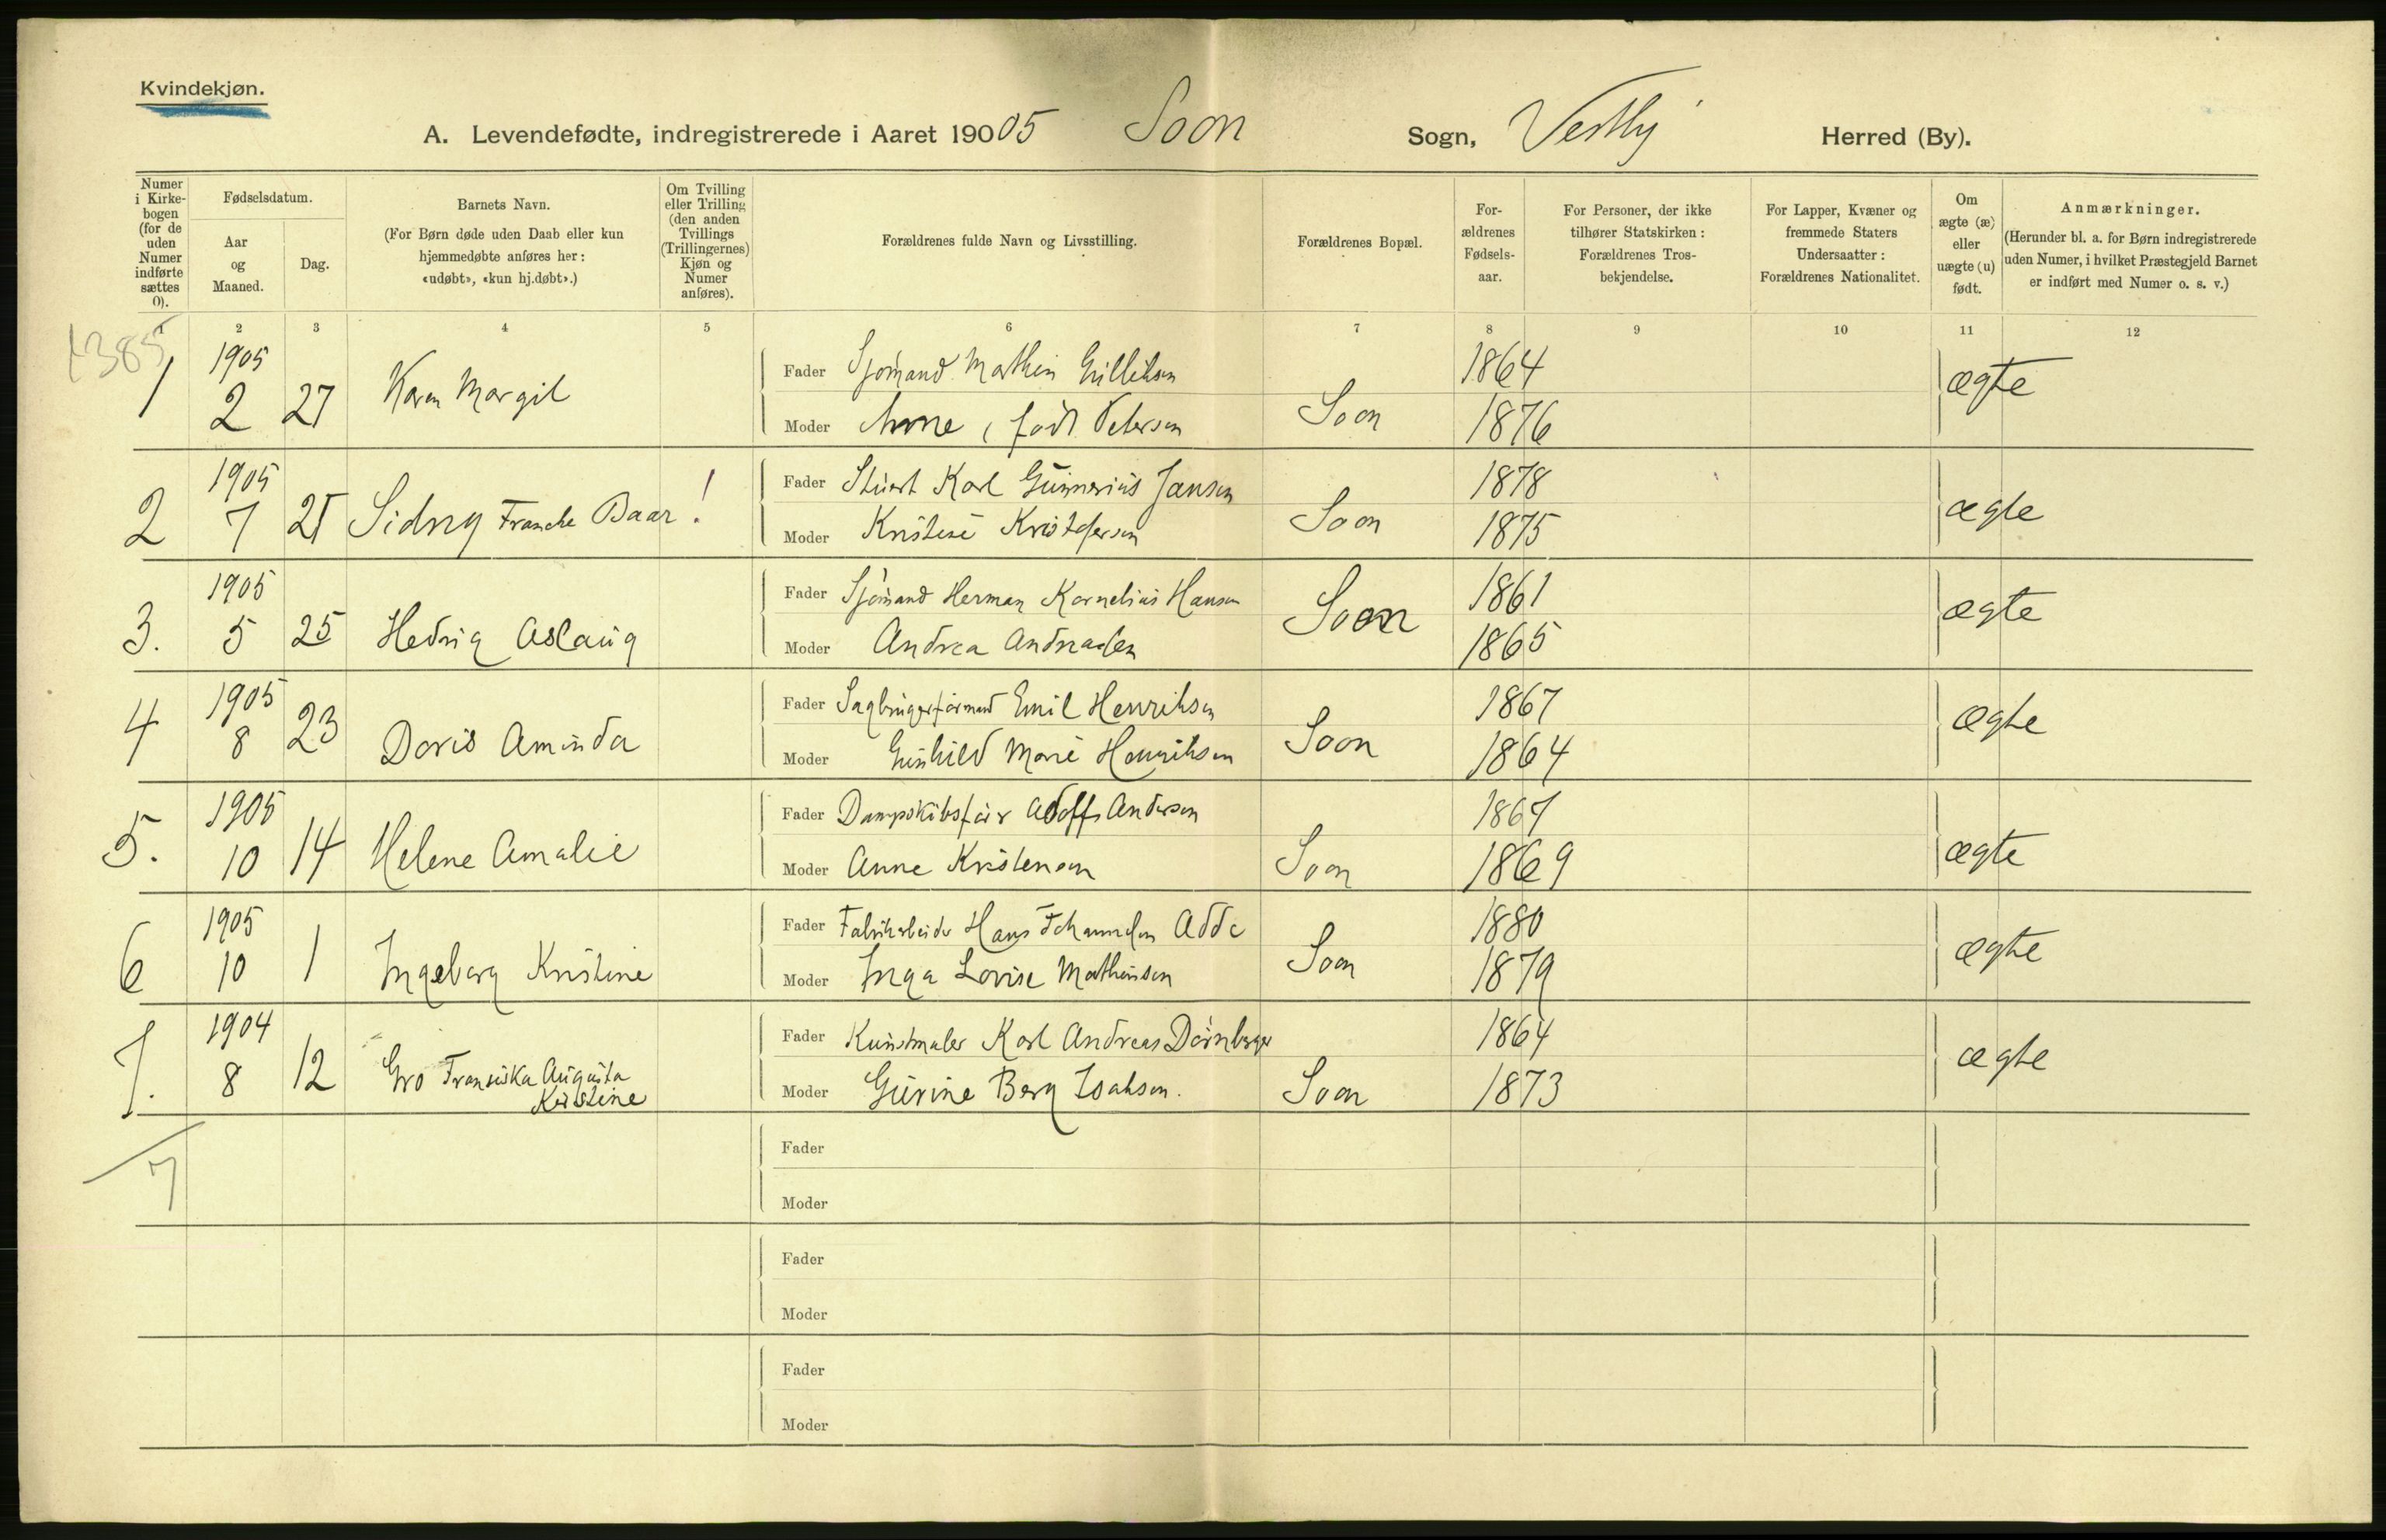 Kvindekjøn.
A. Levendefødte, indregistrerede i Aaret 19005 Soon Sogn, Vestby Herred (By).
Numer i Kirkebogen (for de uden Numer indførte sættes 0).
Fødselsdatum.
Aar og Maaned.
Dag.
Barnets Navn.
(For Børn døde uden Daab eller kun hjemmedøbte anføres her: «udøbt», «kun hj.døbt».)
Om Tvilling eller Trilling (den anden Tvillings (Trillingernes) Kjøn og Numer anføres).
Forældrenes fulde Navn og Livsstilling.
Forældrenes Bopæl.
For-ældrenes Fødsels-aar.
For Personer, der ikke tilhører Statskirken: Forældrenes Tros-bekjendelse.
For Lapper, Kvæner og fremmede Staters Undersaatter: Forældrenes Nationalitet.
Om ægte (æ) eller uægte (u) født.
Anmærkninger.
(Herunder bl. a. for Børn indregistrerede uden Numer, i hvilket Præstegjeld Barnet er indført med Numer o. s. v.)
1 2 3 4 5 6 7 8 9 10 11 12
1 1905 2 27 Karen Margit
Fader Sjømand Mathin 1864 ægte
Moder Anne, født Petersen Soon 1876
2 1905 7 Sidny Baar !
Fader Stuert Karl Gunnerius Jansen 1878 ægte
Moder Kristine Kristofersen Soon 1875
3. 1905 5 25 Hedvig Aslaug
Fader Sjømand Herman Kornelius Hansen Soon 1861 ægte
Moder Andrea Andreasen 1865
4 1905 8 23 Doris Aminda
Fader Emil Henriksen 1867 ægte
Moder Gunhild Marie Henriksen Soon 1864
5. 1905 10 14 Helene Amalie
Fader Adolf Andersen 1867 ægte
Moder Anne Kristensen Soon 1869
6 1905 10 1 Ingeborg Kristine
Fader Fabrikarbeider Hans 1880 ægte
Moder Inga Lovise Mathisen Soon 1879
7. 1904 8 12 Gro Fransiska Augusta Kristine
Fader Kunstmaler Karl Andreas Dørnberger 1864 ægte
Moder Gurine Berg Isaksen. Soon 1873
7
Fader
Moder
Fader
Moder
Fader
Moder